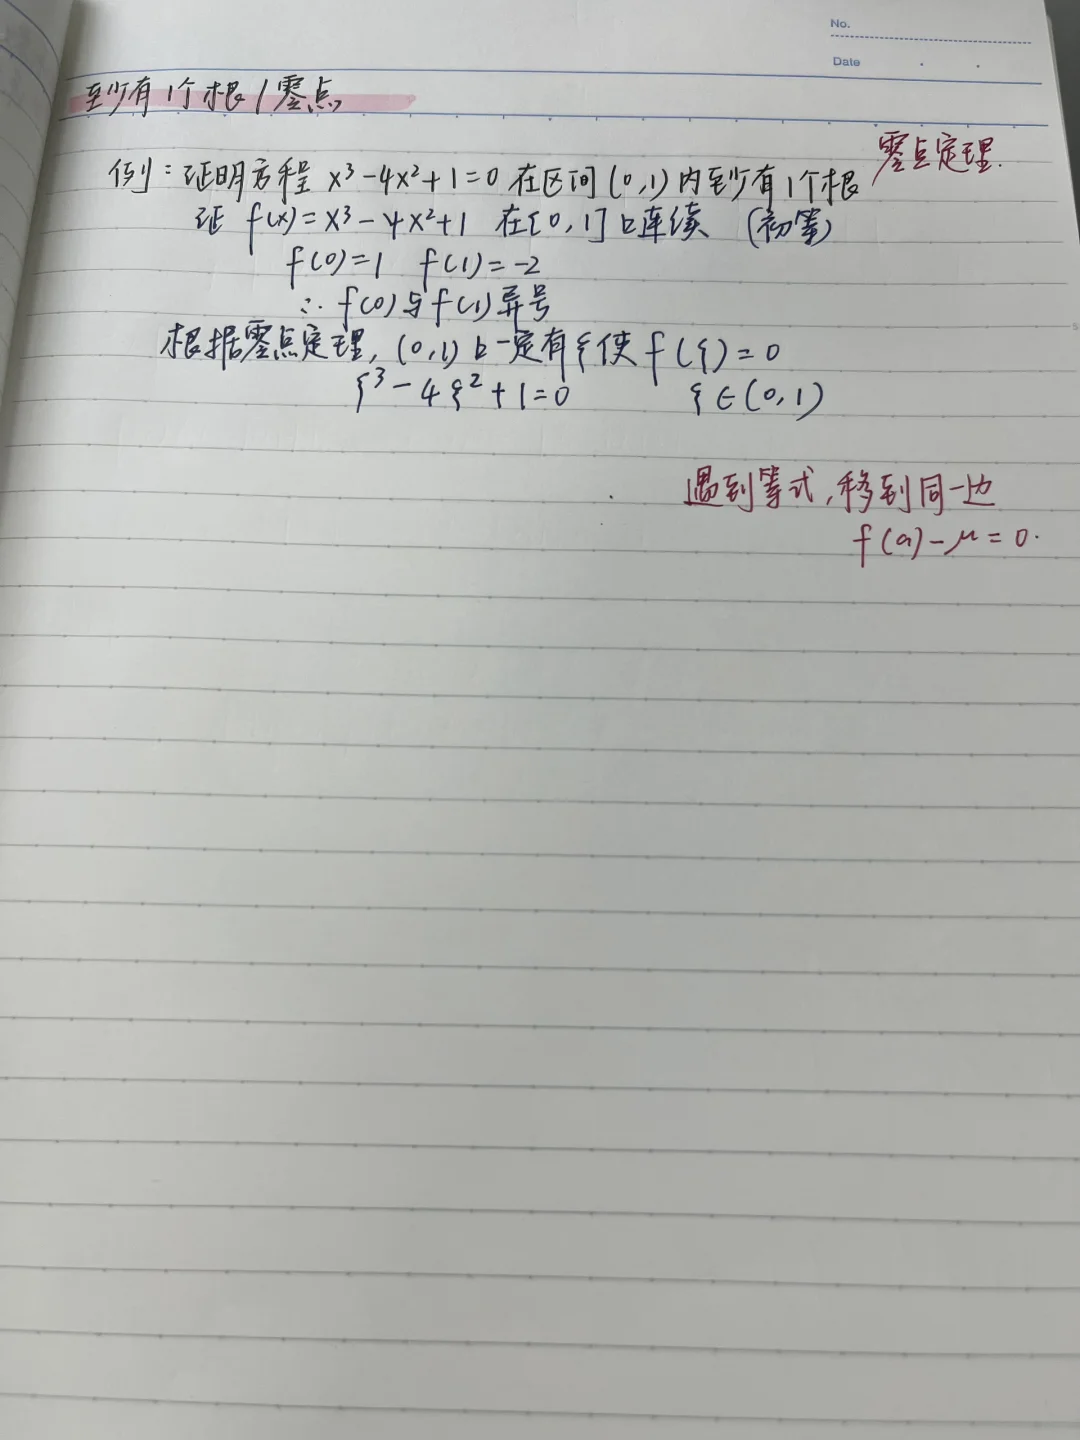 No.
Date
至少有1个根/零点
零点定理.
例：证明方程 x³-4x²+1=0 在区间(0,1)内至少有1个根
证 f(x)=x³-4x²+1 在[0,1]上连续 (初等)
f(0)=1 f(1)=-2
∴ f(0)与f(1)异号
根据零点定理, (0,1)上一定有ξ使 f(ξ)=0
ξ³-4ξ²+1=0 ξ∈(0,1)
遇到等式,移到同一边
f(a)-μ=0.